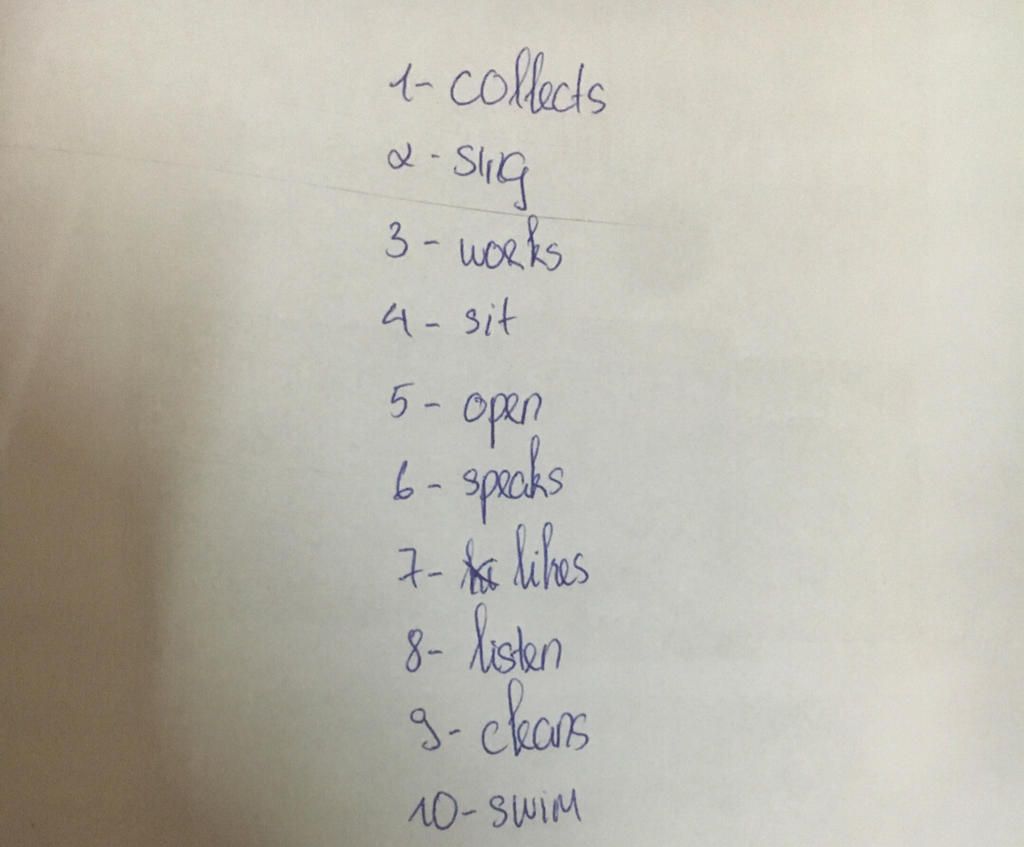 1- collects
2 - sing
3 - works
4 - sit
5 - open
6 - speaks
7- likes
8- listen
9- cleans
10- swim